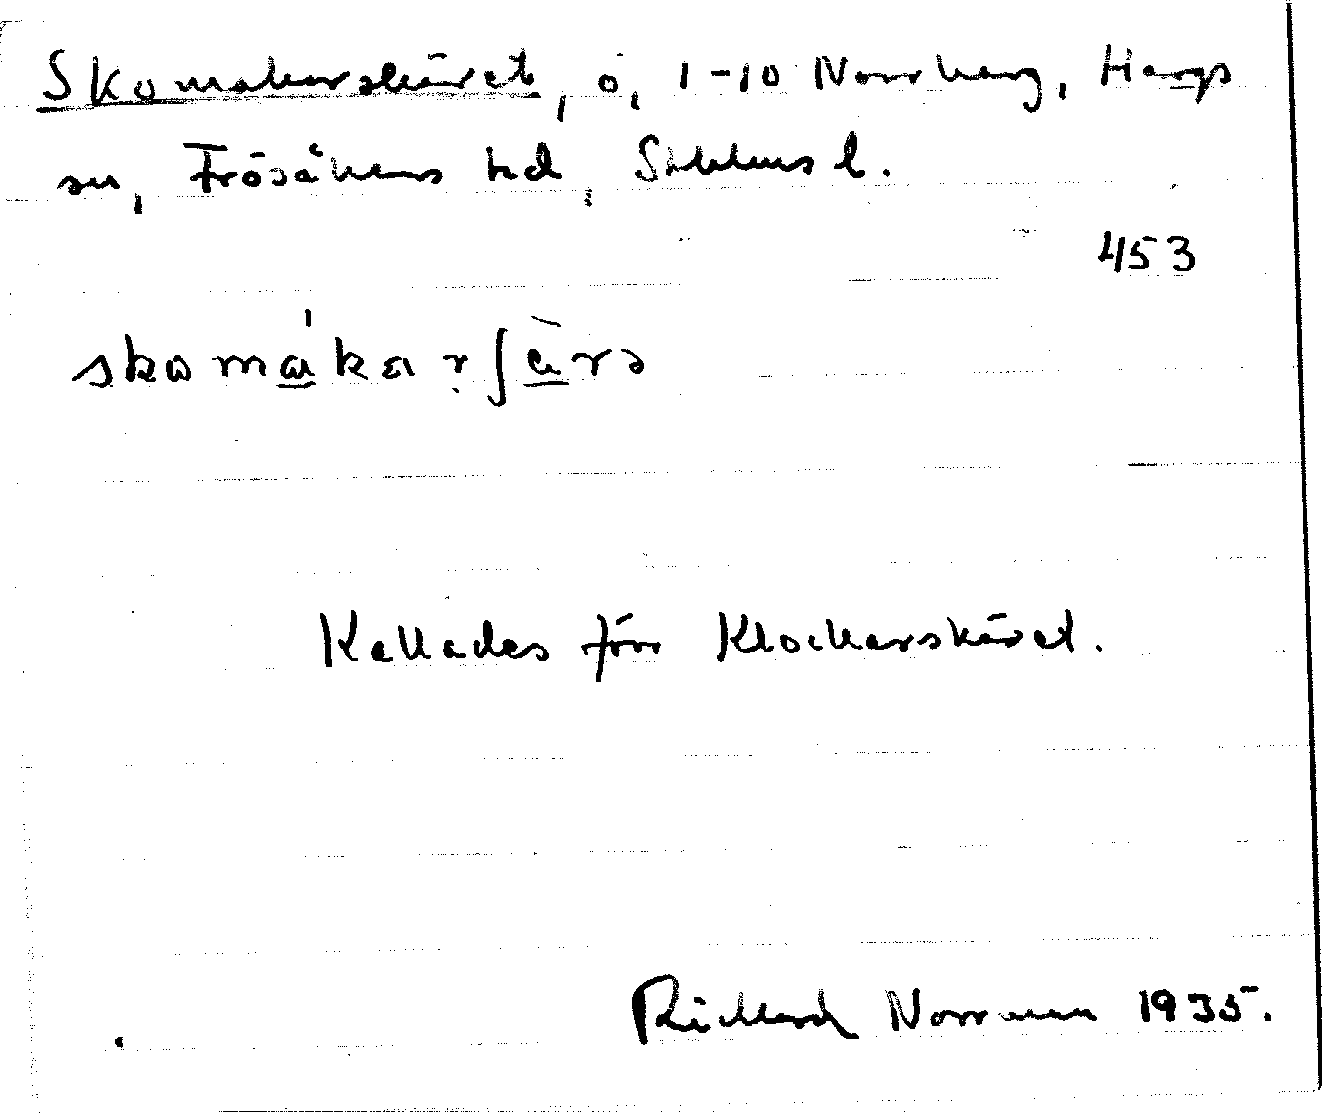 Skomakarskäret, ö, 1-10 Norrberg, Hargs
sn, Frösåkers hd, Sthlms l.
453
skomákarʃæ̀rə
Kallades förr Klockarskäret.
Richard Norrman 1935.